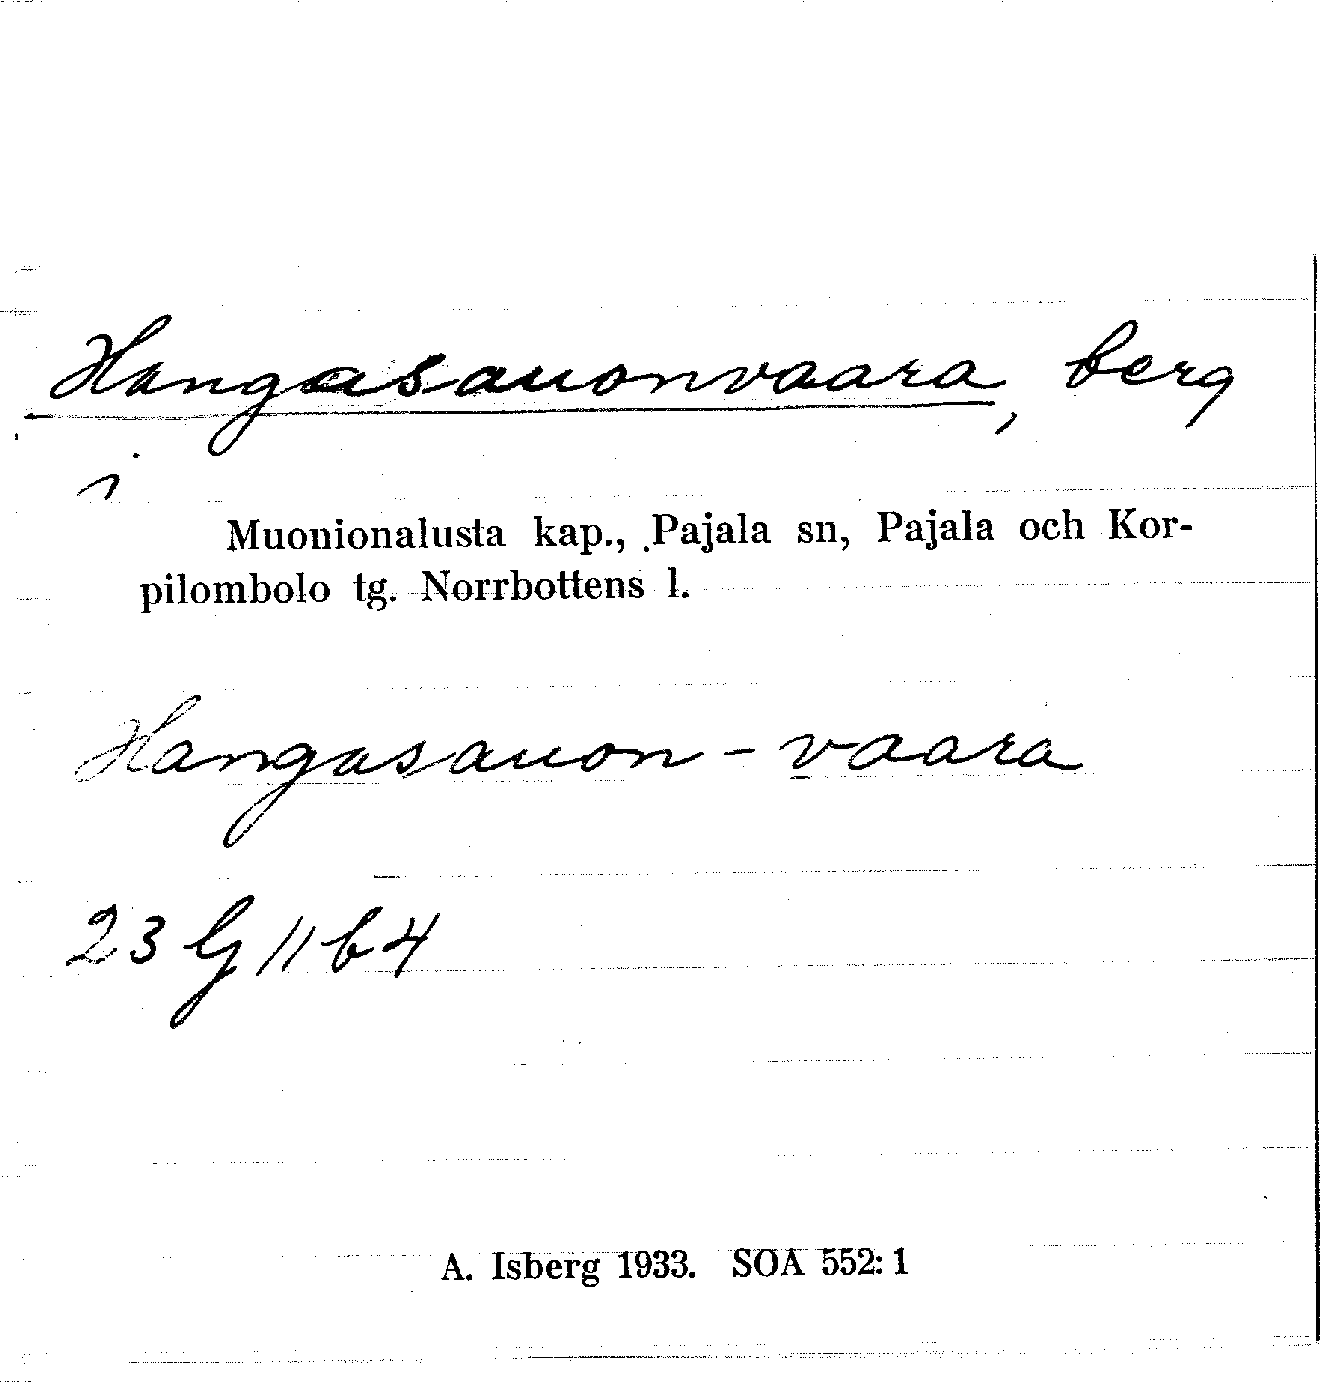 Hangasauonvaara, berg
i
Muonionalusta kap., Pajala sn, Pajala och Kor-
pilombolo tg. Norrbottens l.
Hangasauon-vaara
23 G 11 b 4
A. Isberg 1933. SOA 552:1